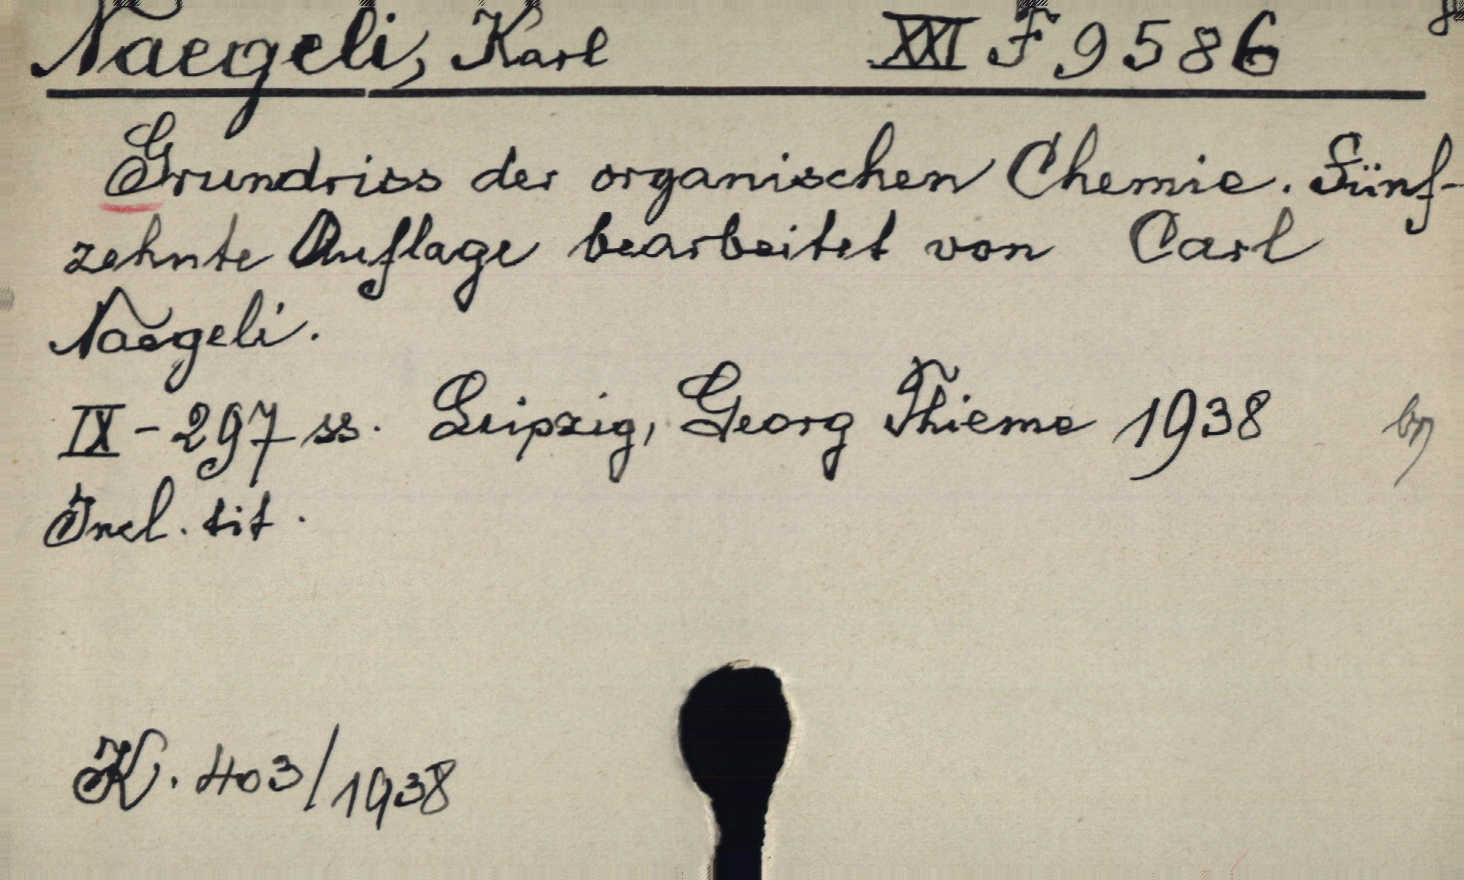 Naegeli, Karl XXI F 9586
Grundriss der organischen Chemie. Fünf-
zehnte Auflage bearbeitet von Carl
Naegeli.
IX - 297 ss. Leipzig, Georg Thieme 1938
Incl. tit.
K. 403/1938